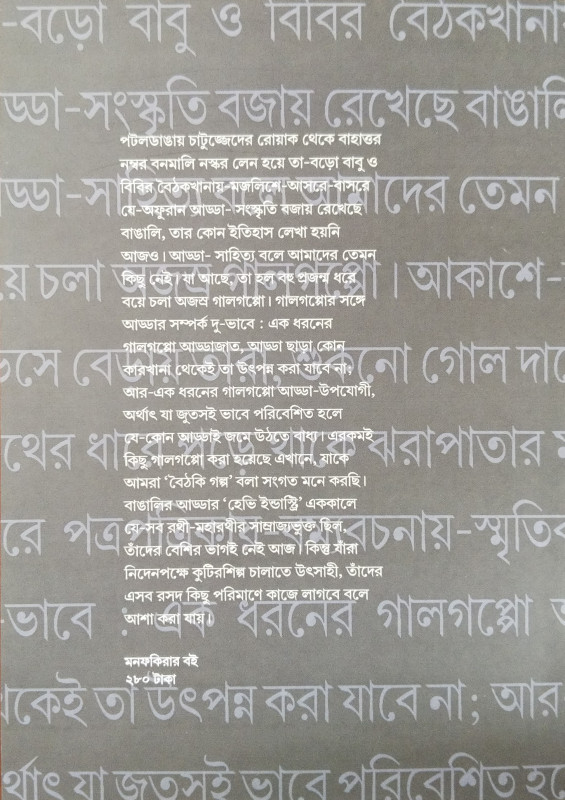 পটলডাঙায় চাটুজ্জেদের রোয়াক থেকে বাহাত্তর
নম্বর বনমালি নস্কর লেন হয়ে তা-বড়ো বাবু ও
বিবির বৈঠকখানায়-মজলিশে-আসরে-বাসরে
যে-অফুরান আড্ডা- সংস্কৃতি বজায় রেখেছে
বাঙালি, তার কোন ইতিহাস লেখা হয়নি
আজও। আড্ডা- সাহিত্য বলে আমাদের তেমন
কিছু নেই। যা আছে, তা হল বহু প্রজন্ম ধরে
বয়ে চলা অজস্র গালগপ্পো। গালগপ্পোর সঙ্গে
আড্ডার সম্পর্ক দু-ভাবে : এক ধরনের
গালগপ্পো আড্ডাজাত, আড্ডা ছাড়া কোন
কারখানা থেকেই তা উৎপন্ন করা যাবে না;
আর-এক ধরনের গালগপ্পো আড্ডা-উপযোগী,
অর্থাৎ যা জুতসই ভাবে পরিবেশিত হলে
যে-কোন আড্ডাই জমে উঠতে বাধ্য। এরকমই
কিছু গালগপ্পো করা হয়েছে এখানে, যাকে
আমরা ‘বৈঠকি গল্প’ বলা সংগত মনে করছি।
বাঙালির আড্ডার ‘হেভি ইন্ডাস্ট্রি’ এককালে
যে-সব রথী-মহারথীর সাম্রাজ্যভুক্ত ছিল,
তাঁদের বেশির ভাগই নেই আজ। কিন্তু যাঁরা
নিদেনপক্ষে কুটিরশিল্প চালাতে উৎসাহী, তাঁদের
এসব রসদ কিছু পরিমাণে কাজে লাগবে বলে
আশা করা যায়।
মনফকিরার বই
২৮০ টাকা
-বড়ো বাবু ও বিবির বৈঠকখানা
ড্ডা-সংস্কৃতি বজায় রেখেছে বাঙালি
ড্ডা-সাহিত্য বলে আমাদের তেমন
য়ে চলা অজস্র গালগপ্পো। আকাশে-
গোল
ঝরাপাতার
-স্মৃতি
-ভাবে : এক ধরনের গালগপ্পো
থেকেই তা উৎপন্ন করা যাবে না; আর
র্থাৎ যা জুতসই ভাবে পরিবেশিত